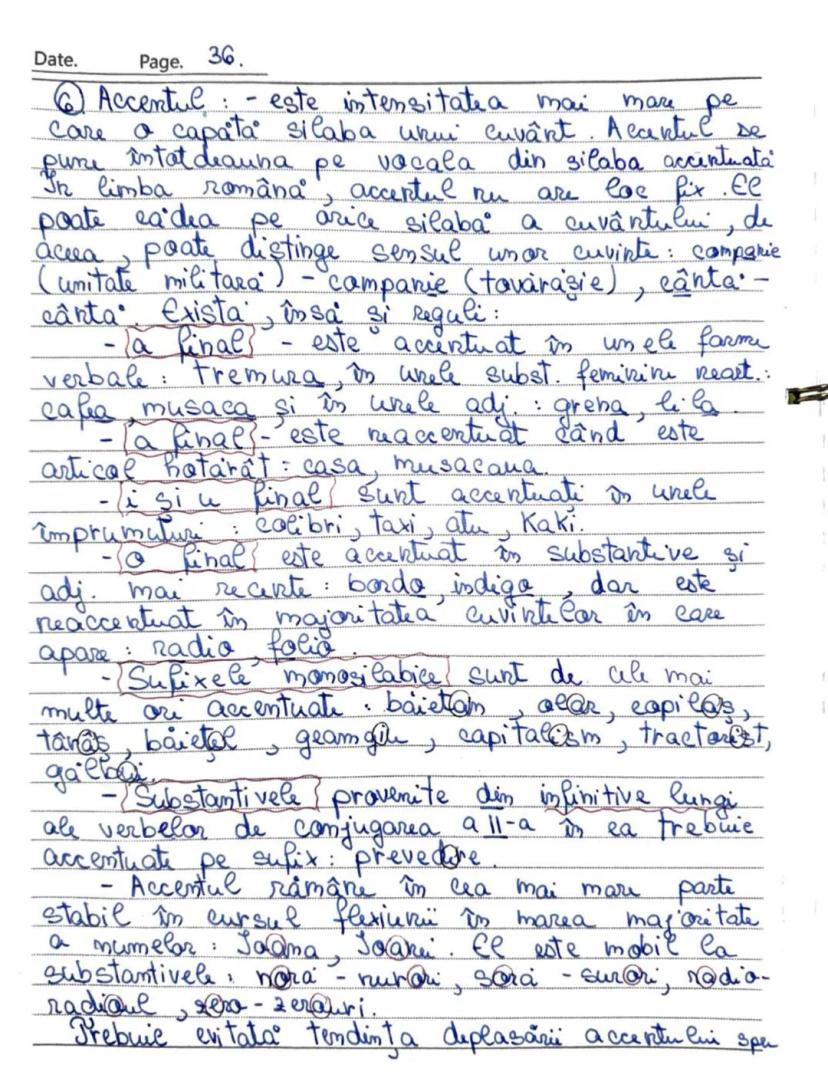 Date. Page. 36.
⑥ Accentul : - este intensitatea mai mare pe
care o capătă silaba unui cuvânt. Accentul se
pune întotdeauna pe vocala din silaba accentuată
În limba română, accentul nu are loc fix. El
poate cădea pe orice silabă a cuvântului, de
aceea, poate distinge sensul unor cuvinte: companie
(unitate militară) - companie (tovărășie), cântă -
cânta. Există, însă și reguli:
- a final - este accentuat în unele forme
verbale: tremura, în unele subst. feminine neart.:
cafea, musaca și în unele adj.: grena, lila.
- a final - este neaccentuat când este
articol hotărât: casa, musacaua.
- i și u final sunt accentuați în unele
împrumuturi: colibri, taxi, atu, Kaki.
- o final este accentuat în substantive și
adj. mai recente: bordo, indigo, dar este
neaccentuat în majoritatea cuvintelor în care
apare: radio, folio.
- Sufixele monosilabice sunt de cele mai
multe ori accentuate: băiețam, olar, copilaș,
tânăș, băiețel, geamgiu, capitalism, tractorist,
gălbui.
- Substantivele provenite din infinitive lungi
ale verbelor de conjugarea a II-a în ea trebuie
accentuate pe sufix: prevedere.
- Accentul rămâne în cea mai mare parte
stabil în cursul flexiunii în marea majoritate
a numelor: Ioana, Ioanei. El este mobil la
substantivele: noră - nurori, soră - surori, radio-
radioul, zero - zerouri.
Trebuie evitată tendința deplasării accentului spre